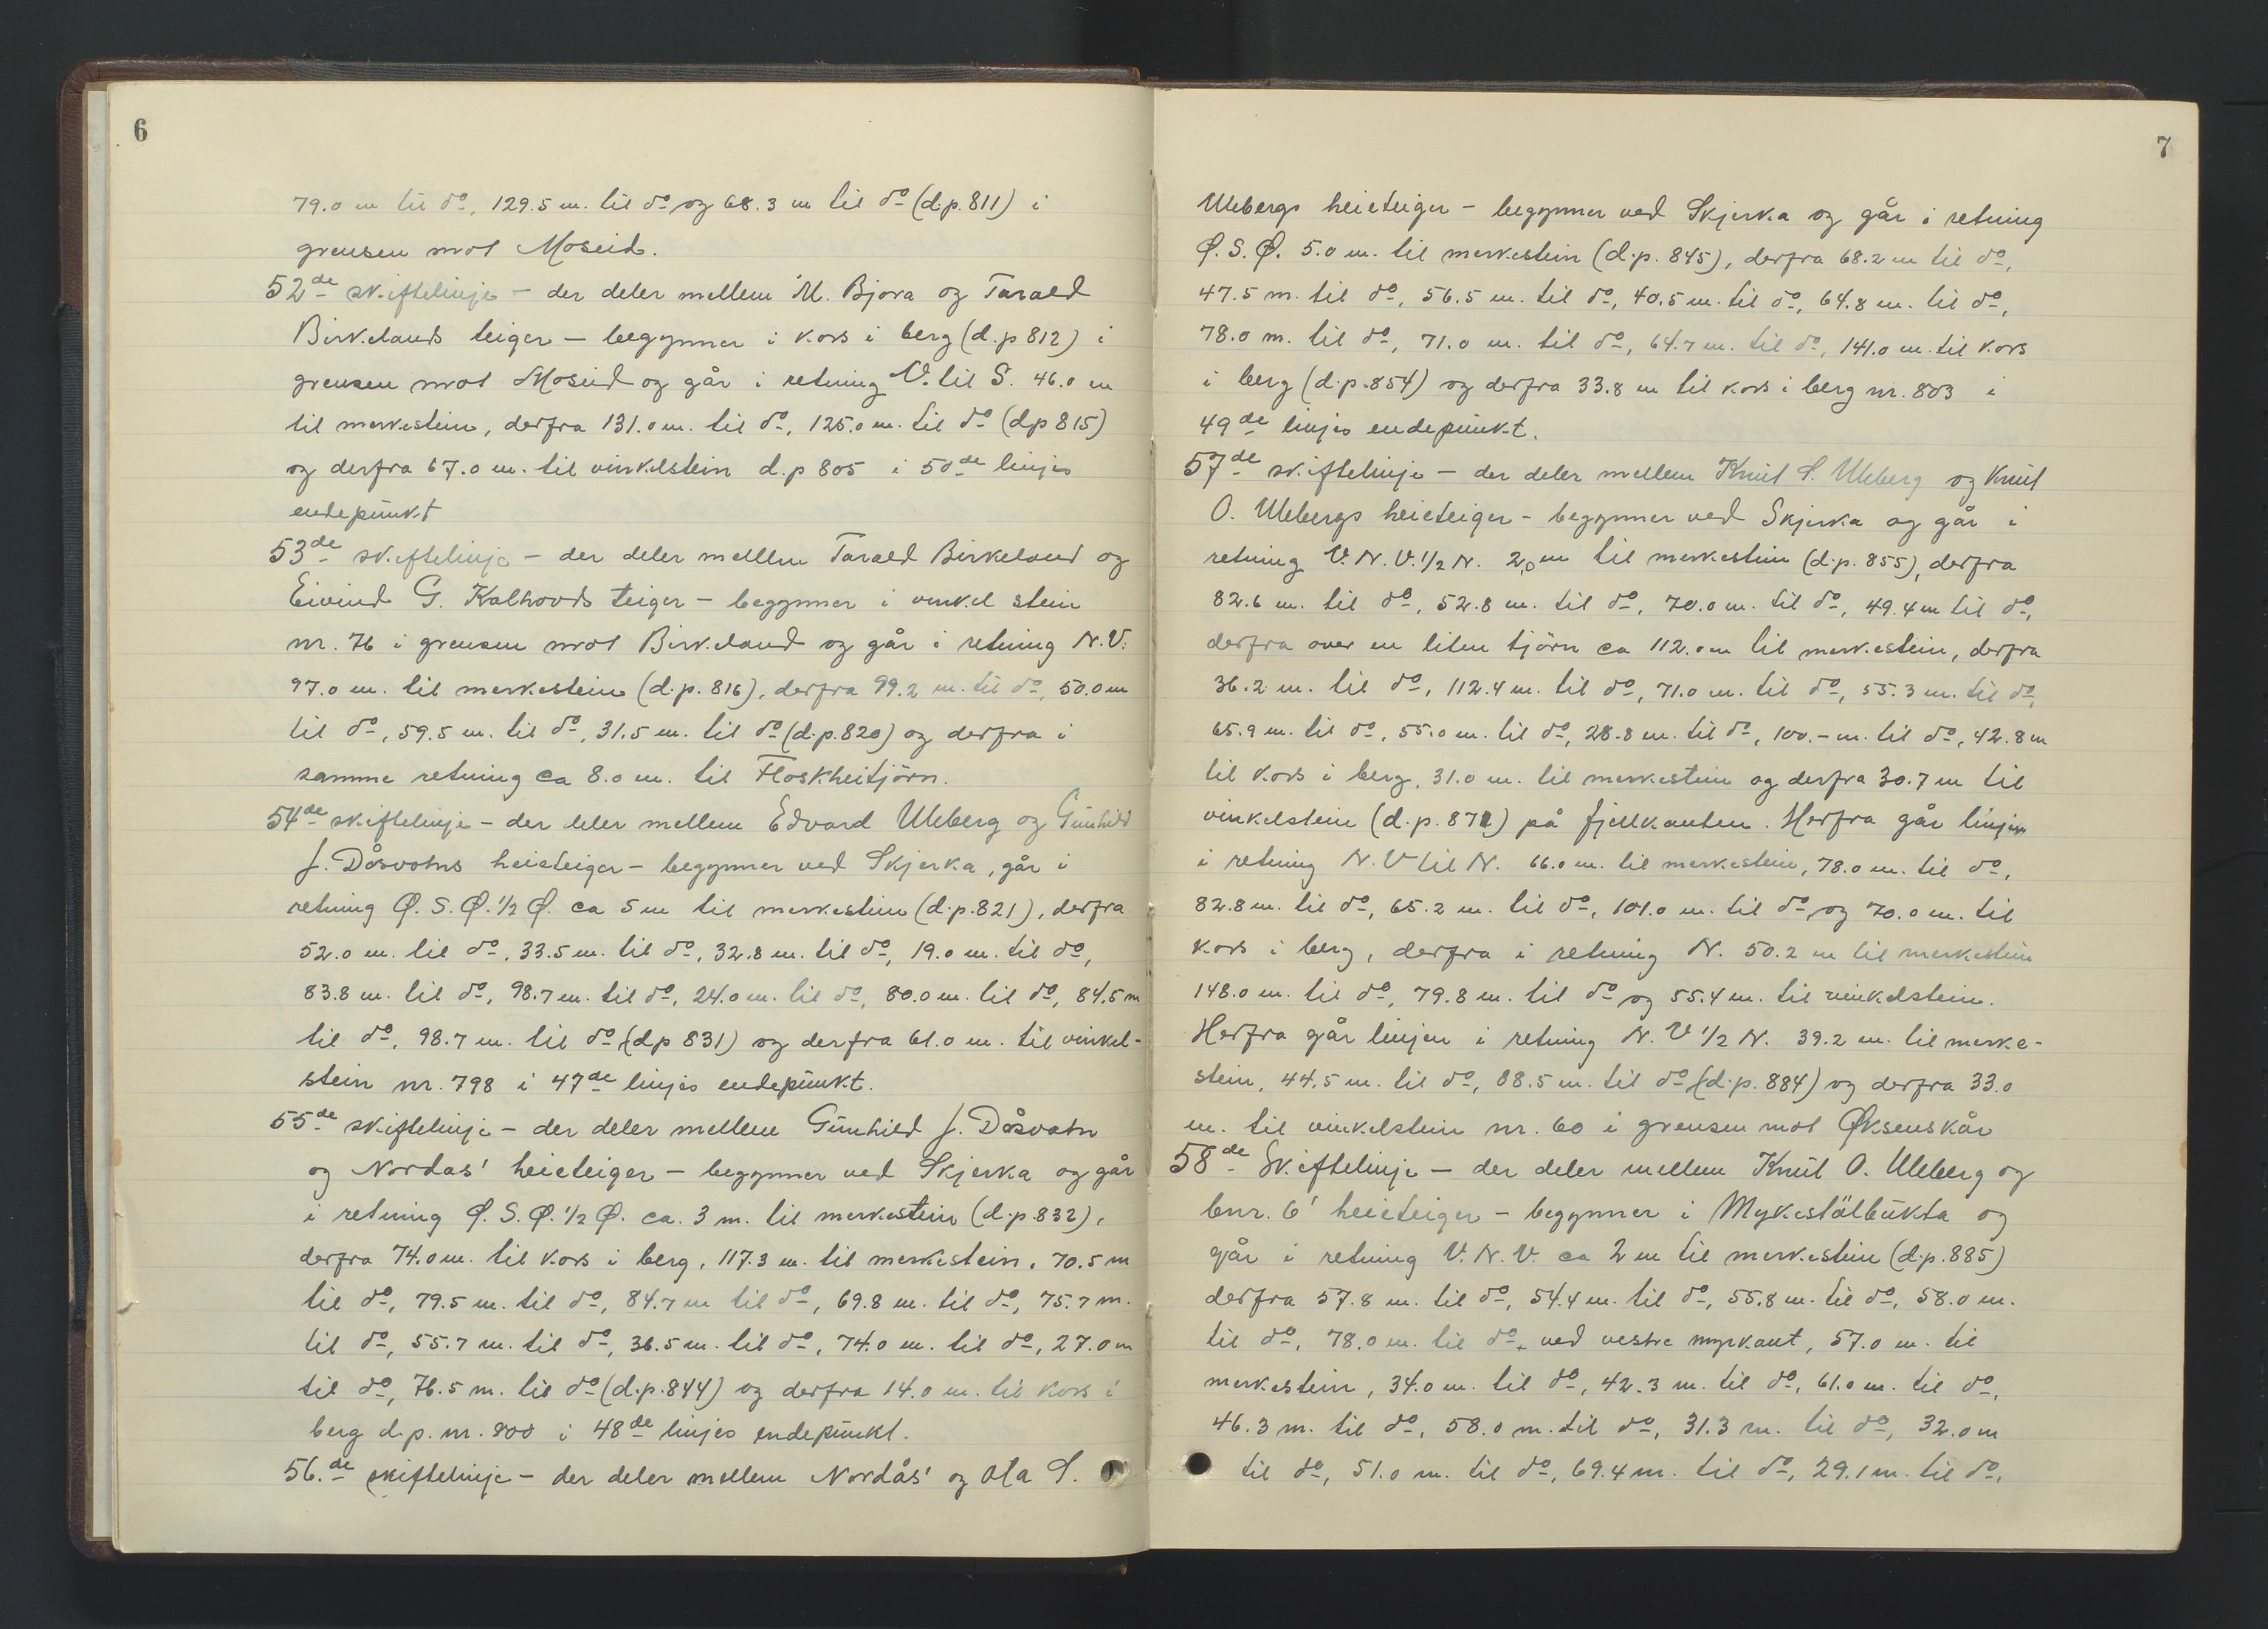 6
79.0 m til do, 129.5 m. til do og 68.3 m til do (d.p. 811) i
grensen mot Moseid.
52de skiftelinje – der deler mellem M. Bjora og Tarald
Birkelands teiger – begynner i kors i berg (d.p 812) i
grensen mot Moseid og går i retning V. til S. 46.0 m
til merkestein, derfra 131.0 m. til do, 125.0 m. til do (dp 815)
og derfra 67.0 m. til vinkelstein d.p 805 i 50de linjes
endepunkt
53de skiftelinje – der deler mellem Tarald Birkeland og
Eivind G. Kalhovds teiger – begynner i vinkel stein
nr. 76 i grensen mot Birkeland og går i retning N.V.
97.0 m. til merkestein (d.p. 816), derfra 99.2 m. til do, 50.0 m
til do, 59.5 m. til do, 31.5 m. til do (d.p. 820) og derfra i
samme retning ca 8.0 m. til Floskheitjörn.
54de skiftelinje – der deler mellem Edvard Uleberg og Gunhild
J. Dåsvatns heieteiger – begynner ved Skjerka, går i
retning Ø. S. Ø. 1/2 Ø. ca 5 m til merkestein (d.p. 821), derfra
52.0 m. til do, 33.5 m. til do, 32.8 m. til do, 19.0 m. til do,
83.8 m. til do, 98.7 m. til do, 24.0 m. til do, 80.0 m. til do, 84.5 m
til do, 98.7 m. til do (dp 831) og derfra 61.0 m. til vinkel-
stein nr. 798 i 47de linjes endepunkt.
55de skiftelinje – der deler mellem Gunhild J. Dåsvatn
og Nordas' heieteiger – begynner ved Skjerka og går
i retning Ø. S. Ø. 1/2 Ø. ca. 3 m. til merkestein (d.p. 832),
derfra 74.0 m. til kors i berg, 117.3 m. til merkestein, 70.5 m
til do, 79.5 m. til do, 84.7 m til do, 69.8 m. til do, 75.7 m.
til do, 55.7 m. til do, 36.5 m. til do, 74.0 m. til do, 27.0 m
til do, 76.5 m. til do (d.p. 844) og derfra 14.0 m. til kors i
berg d.p. nr. 800 i 48de linjes endepunkt.
56.de skiftelinje – der deler mellem Nordås' og Ola S.
7
Ulebergs heieteiger – begynner ved Skjerka og går i retning
Ø. S. Ø. 5.0 m. til merkestein (d.p. 845), derfra 68.2 m til do,
47.5 m. til do, 56.5 m. til do, 40.5 m. til do, 64.8 m. til do,
78.0 m. til do, 71.0 m. til do, 64.7 m. til do, 141.0 m. til kors
i berg (d.p. 854) og derfra 33.8 m til kors i berg nr. 803 i
49de linjes endepunkt.
57de skiftelinje – der deler mellem Knut S. Uleberg og Knut
O. Ulebergs heieteiger – begynner ved Skjerka og går i
retning V. N. V. 1/2 N. 2,0 m til merkestein (d.p. 855), derfra
82.6 m. til do, 52.8 m. til do, 70.0 m. til do, 49.4 m til do,
derfra over en liten tjörn ca 112.0 m til merkestein, derfra
36.2 m. til do, 112.4 m. til do, 71.0 m. til do, 55.3 m. til do,
65.9 m. til do, 55.0 m. til do, 28.8 m. til do, 100.- m. til do, 42.8 m
til kors i berg, 31.0 m. til merkestein og derfra 30.7 m til
vinkelstein (d.p. 871) på fjellkanten. Herfra går linjen
i retning N. V til N. 66.0 m. til merkestein, 78.0 m. til do,
82.8 m. til do, 65.2 m. til do, 101.0 m. til do og 70.0 m. til
kors i berg, derfra i retning N. 50.2 m til merkestein
148.0 m. til do, 79.8 m. til do og 55.4 m. til vinkelstein.
Herfra går linjen i retning N. V 1/2 N. 39.2 m. til merke-
stein, 44.5 m. til do, 88.5 m. til do (d.p. 884) og derfra 33.0
m. til vinkelstein nr. 60 i grensen mot Øksenskår
58de Skiftelinje – der deler mellem Knut O. Uleberg og
bnr. 6' heieteiger – begynner i Mykestölbukta og
går i retning V. N. V. ca 2 m til merkestein (d.p. 885)
derfra 57.8 m. til do, 54.4 m. til do, 55.8 m. til do, 58.0 m.
til do, 78.0 m. til do, ved vestre myrkant, 57.0 m. til
merkestein, 34.0 m. til do, 42.3 m. til do, 61.0 m. til do,
46.3 m. til do, 58.0 m. til do, 31.3 m. til do, 32.0 m
til do, 51.0 m. til do, 69.4 m. til do, 29.1 m. til do,